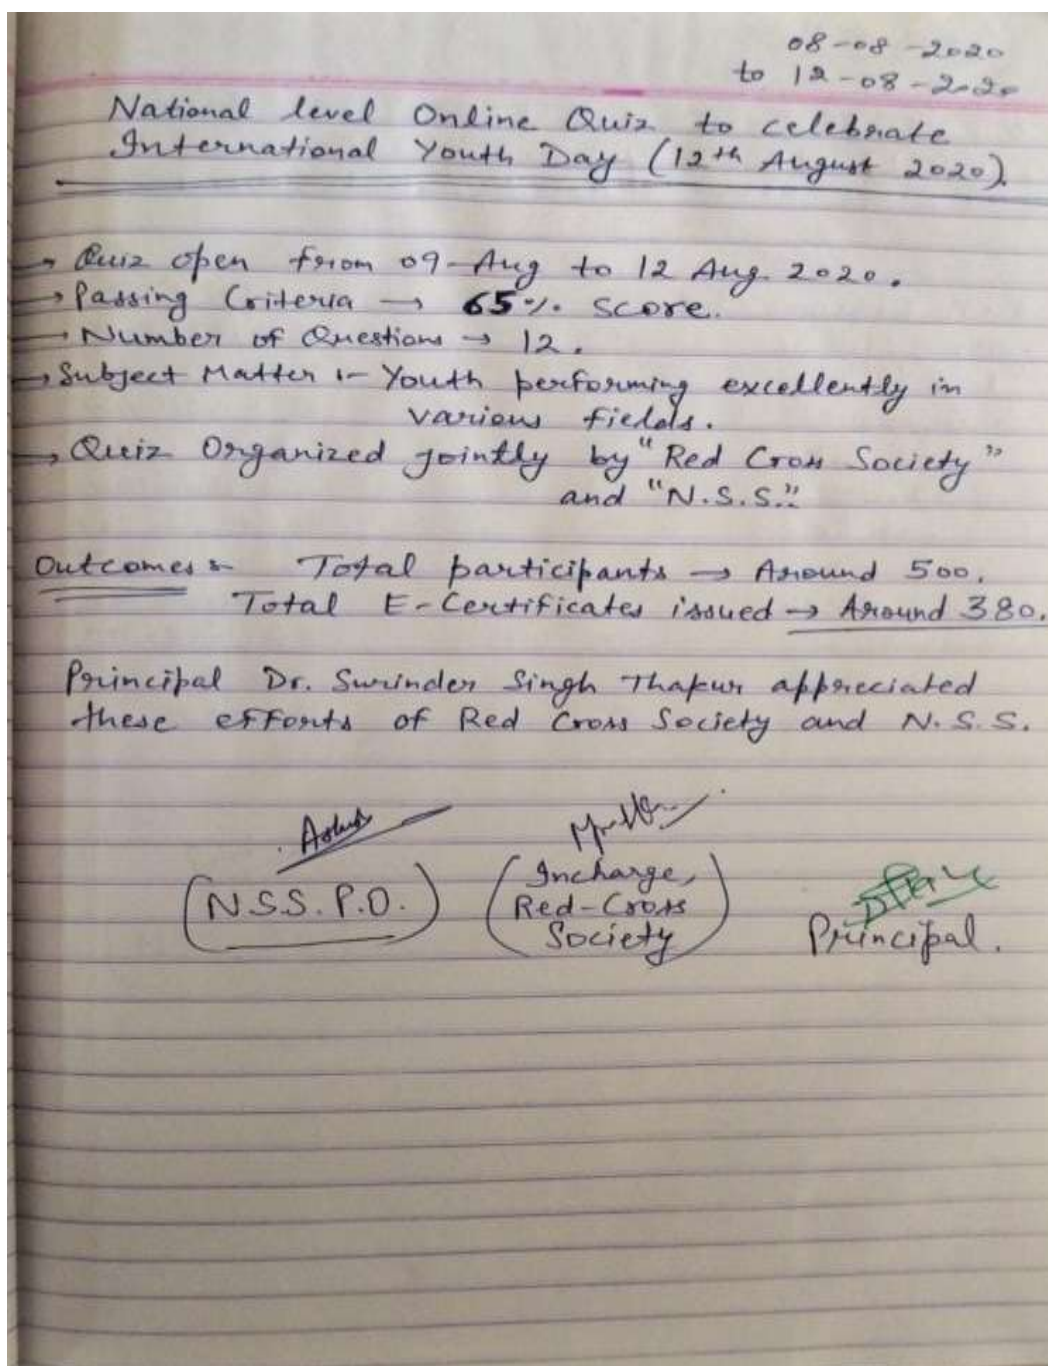 08-08-2020
to 12-08-2020
National level Online Quiz to celebrate
International Youth Day (12th August 2020).
→ Quiz open from 09-Aug to 12 Aug. 2020.
→ Passing Criteria → 65% score.
→ Number of Questions → 12.
→ Subject Matter :- Youth performing excellently in
various fields.
→ Quiz Organized jointly by "Red Cross Society"
and "N.S.S."
Outcomes :- Total participants → Around 500.
Total E-Certificates issued → Around 380.
Principal Dr. Surinder Singh Thakur appreciated
these efforts of Red Cross Society and N.S.S.
(N.S.S. P.O.)
(Incharge,
Red-Cross
Society)
Principal.